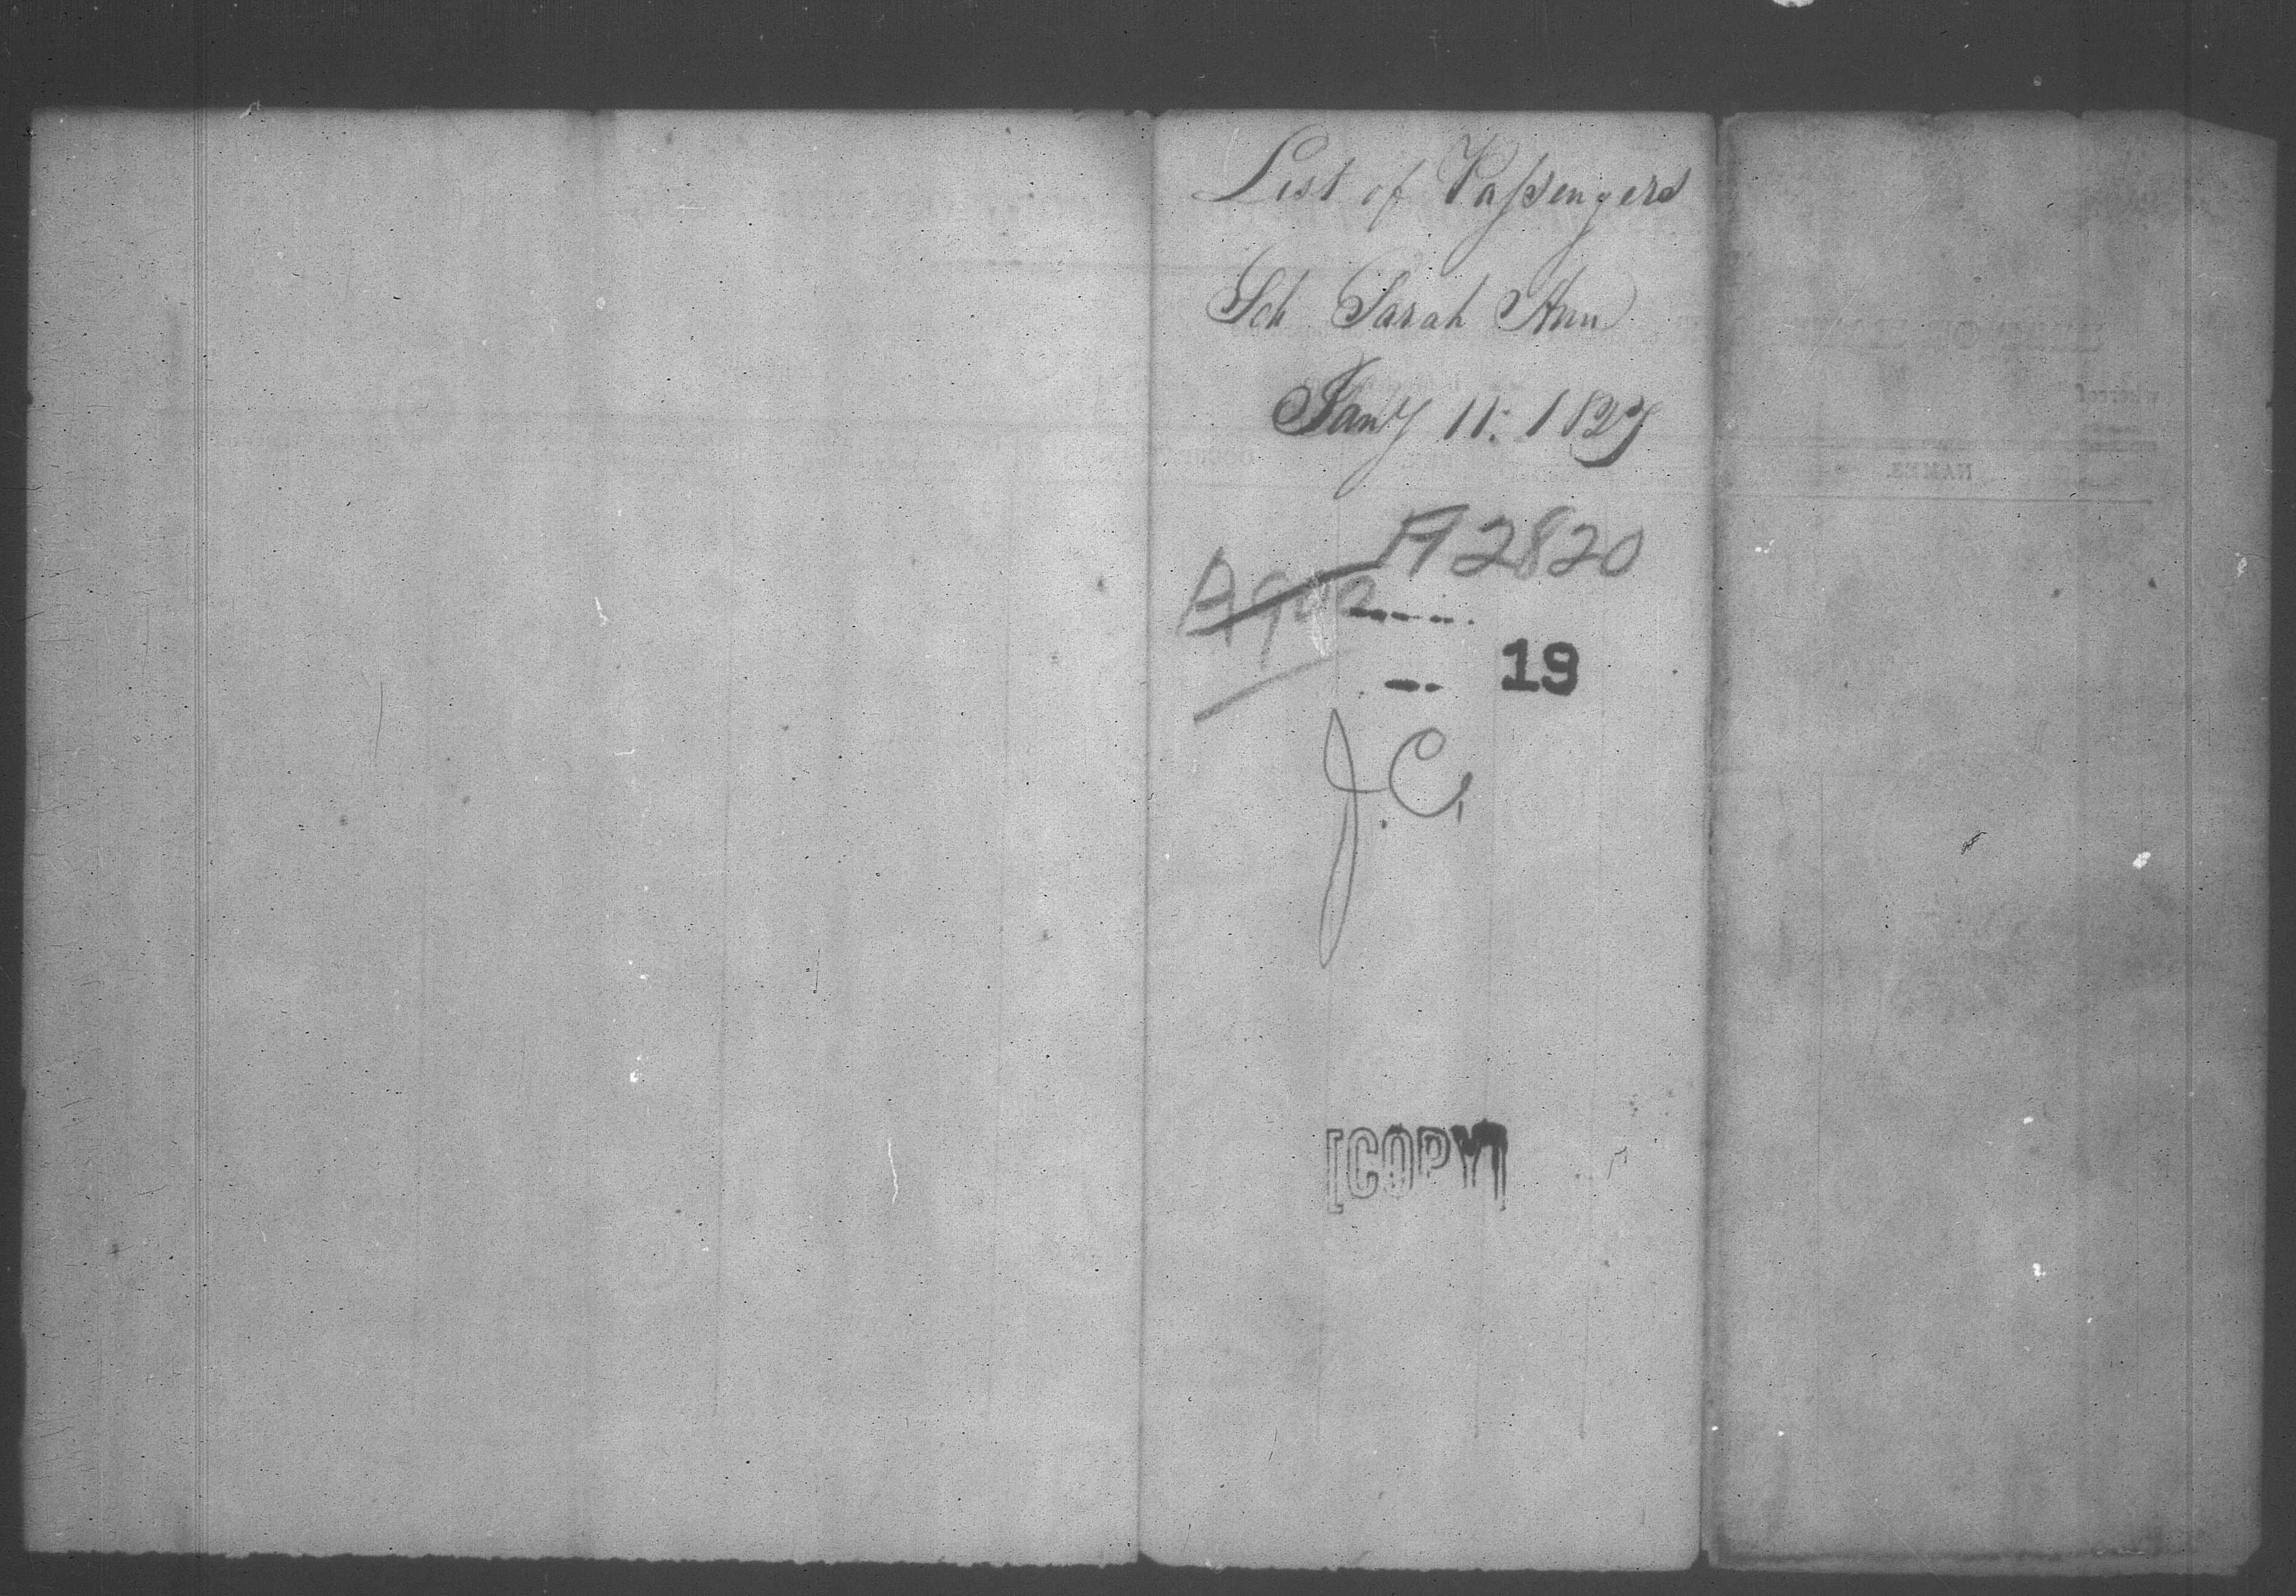 List of Passengers
Sch Sarah Ann
Jany 11: 1827
A2820
19
J.C.
[COPY]
NAMES.